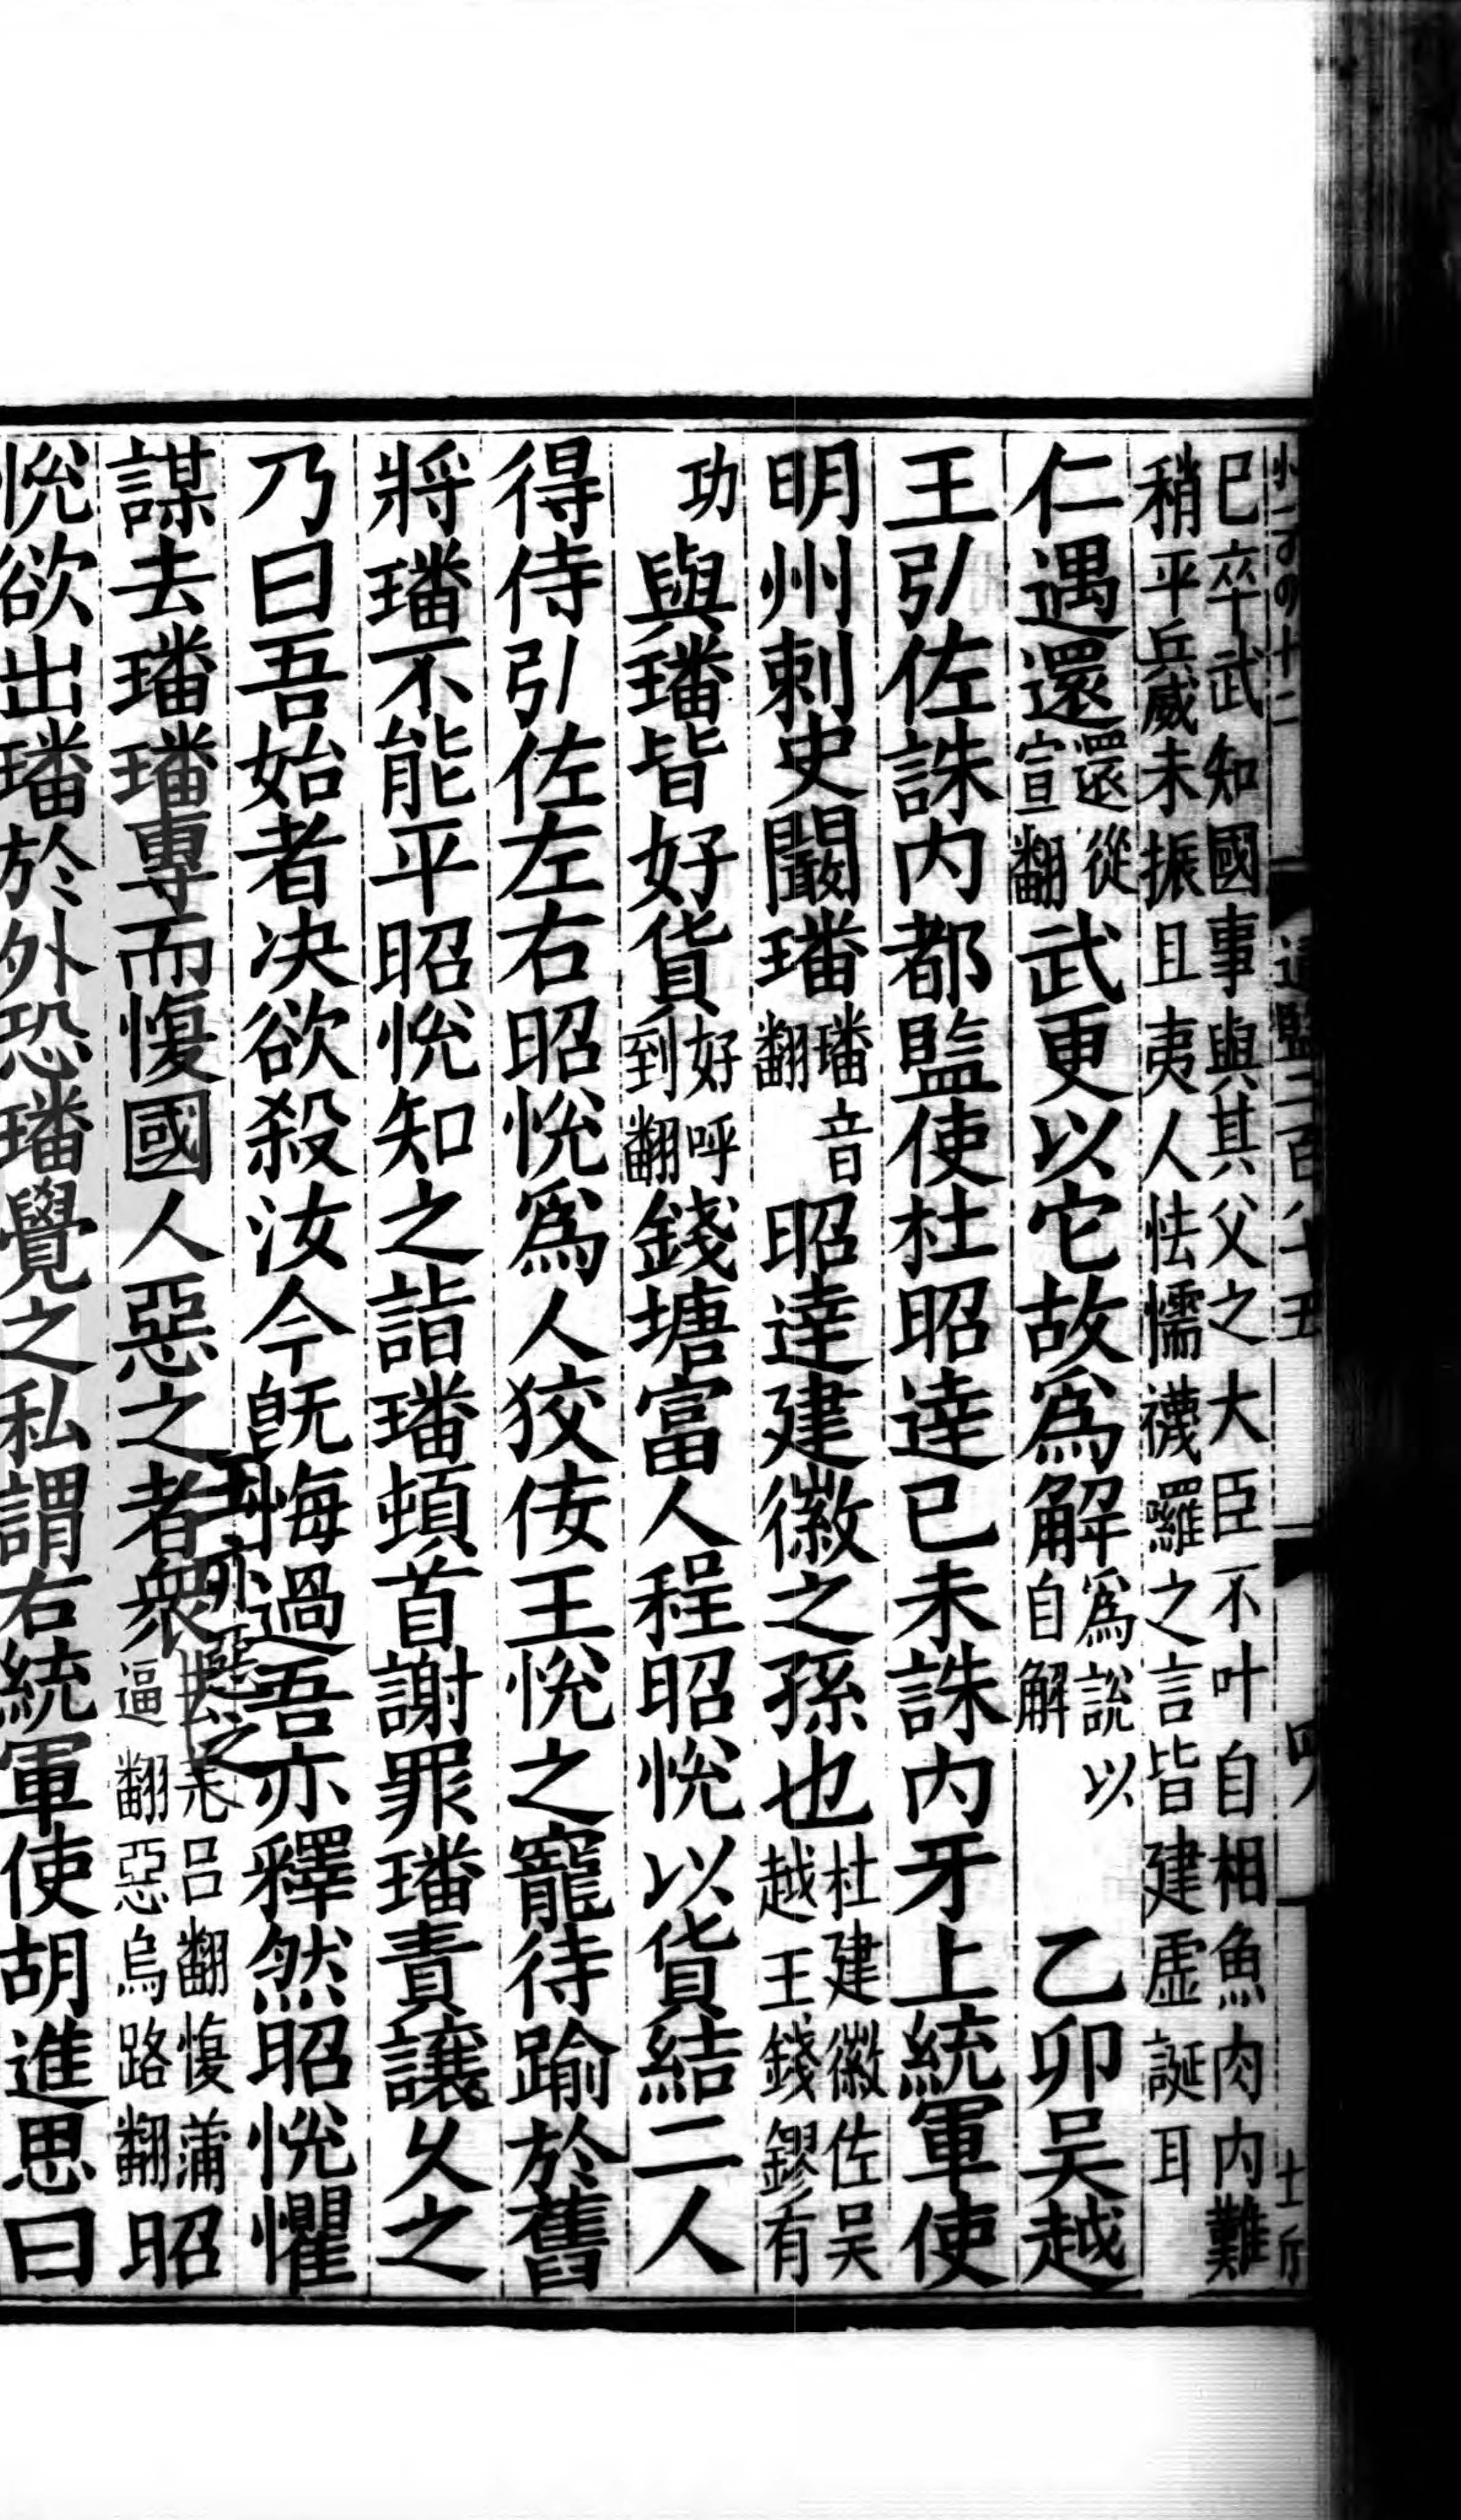 通鑑二百八十五
四
巳卒武知國事與其父之大臣不叶自相魚肉内難
稍平兵威未振且夷人怯懦襪囉之言皆建虚誕耳
仁遇還還從宣翻武更以它故爲解爲説以自解乙卯吴越
王引佐誅内都監使杜昭達已未誅内牙上統軍使
明州刺史闞璠璠音翻昭達建徽之孫也杜建徽佐吴越王錢鏐有
功與璠皆好貨好呼到翻錢塘富人程昭悦以貨結二人
得侍引佐左右昭悦爲人狡佞王悦之寵待踰於舊
將璠不能平昭悦知之詣璠頓首謝罪璠責讓乆之
乃曰吾始者决欲殺汝今旣悔過吾亦釋然昭悦懼
謀去璠璠專而愎國人惡之者衆去羌吕翻愎蒲逼翻惡烏路翻昭
王亦惡之
悦欲出璠於外恐璠覺之私謂右統軍使胡進思曰